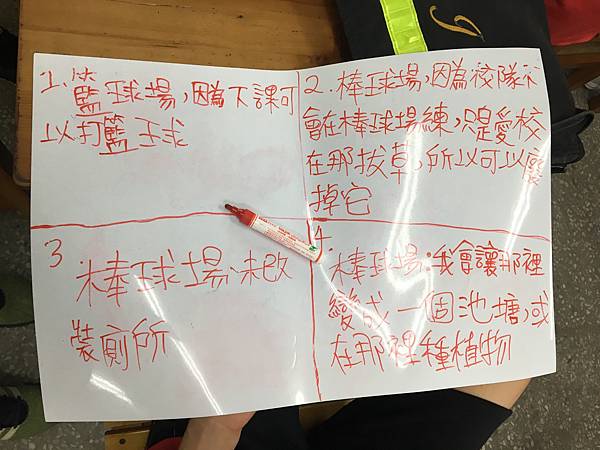 1. 籃球場,因為下課可
以打籃球
2. 棒球場,因為校隊不
會在棒球場練,只是愛校
在那拔草,所以可以廢
掉它
3
棒球場:未改
裝廁所
4.
棒球場:我會讓那裡
變成一個池塘,或
在那裡種植物